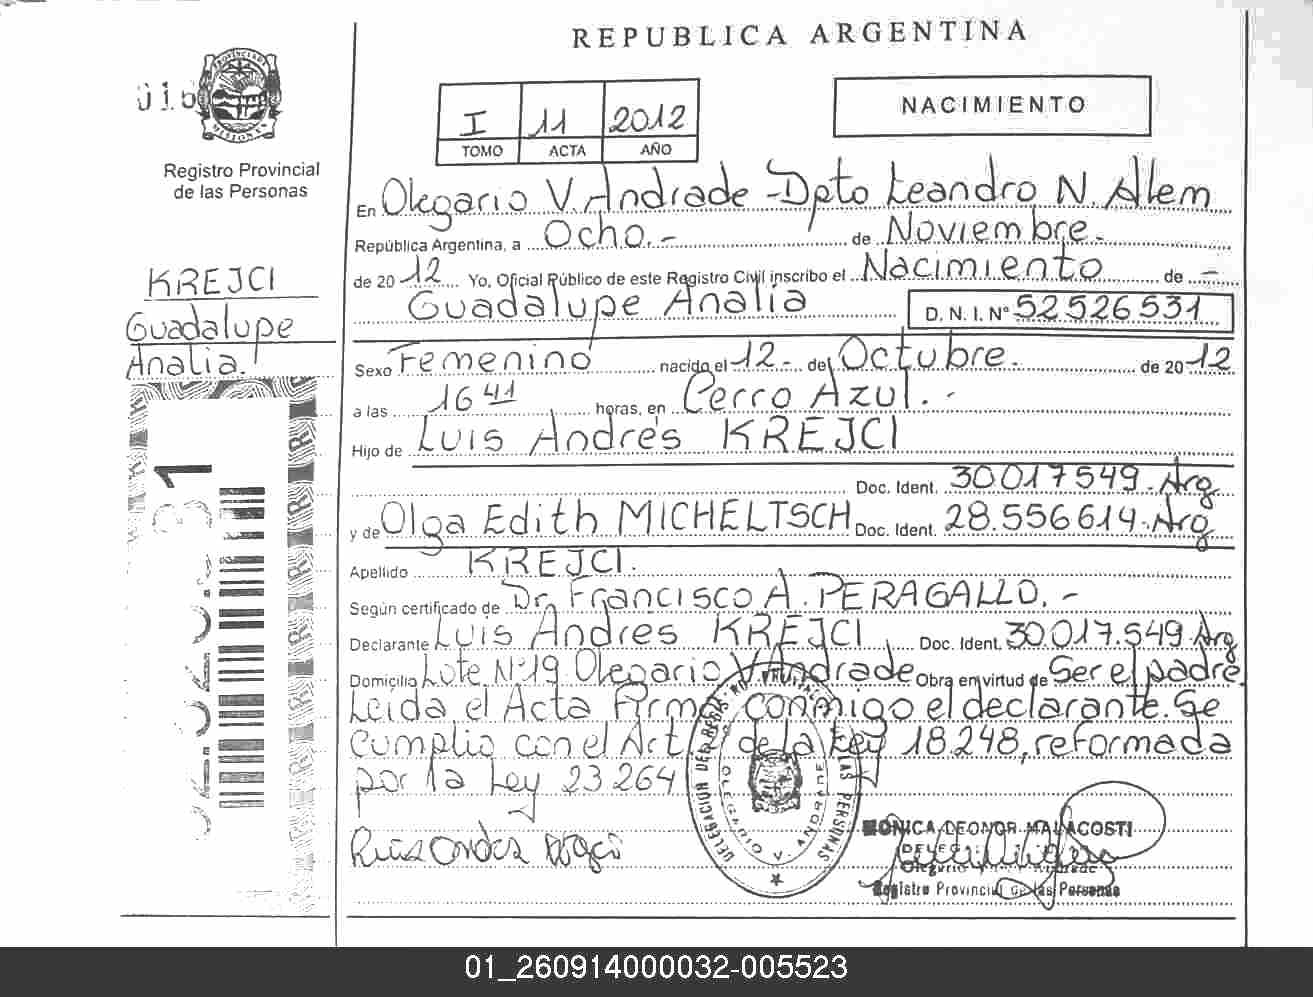 REPUBLICA ARGENTINA
016
PROVINCIA DE MISIONES
Registro Provincial
de las Personas
I 11 2012
TOMO ACTA AÑO
NACIMIENTO
En Olegario V. Andrade - Dpto Leandro N. Alem
República Argentina, a Ocho.- de Noviembre.-
de 2012 Yo, Oficial Público de este Registro Civil inscribo el Nacimiento de -
Guadalupe Analia D. N. I. N° 52526531
KREJCI
Guadalupe
Analia.
Sexo Femenino nacido el 12.- de Octubre. de 2012
a las 16 41 horas, en Cerro Azul. -
Hijo de Luis Andrés KREJCI
Doc. Ident. 30017549. Arg
y de Olga Edith MICHELTSCH Doc. Ident. 28.556614. Arg
Apellido KREJCI.
Según certificado de Dr. Francisco A. PERAGALLO. -
Declarante Luis Andres KREJCI Doc. Ident. 30.017.549. Arg
Domicilio Lote N°19 Olegario V. Andrade Obra en virtud de Ser el padre.
Leida el Acta Firma conmigo el declarante. Se
cumplio con el Art de la Ley 18.248, reformada
por la Ley 23 264
DELEGACION DEL REGISTRO PROVINCIAL DE LAS PERSONAS
OLEGARIO V. ANDRADE
MONICA LEONOR MALACOSTI
Olegario V. Andrade
Registro Provincial de las Personas
01_260914000032-005523